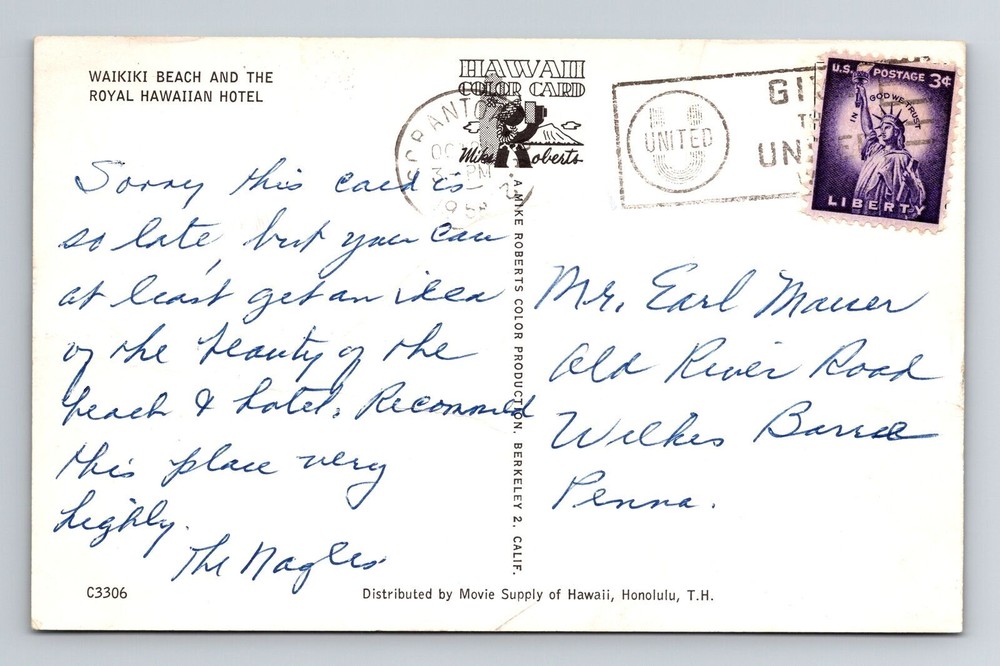 WAIKIKI BEACH AND THE
ROYAL HAWAIIAN HOTEL
HAWAII
COLOR CARD
Mike Roberts
SCRANTON
PM
UNITED
GI
UN
U.S. POSTAGE 3¢
IN GOD WE TRUST
LIBERTY
Sorry this card is
so late, but you can
at least get an idea
of the beauty of the
beach & hotel. Recommend
this place very
highly.
The Nagles
A MIKE ROBERTS COLOR PRODUCTION. BERKELEY 2. CALIF.
Mr. Earl Mauer
Old River Road
Wilkes Barre
Penna.
C3306
Distributed by Movie Supply of Hawaii, Honolulu, T.H.